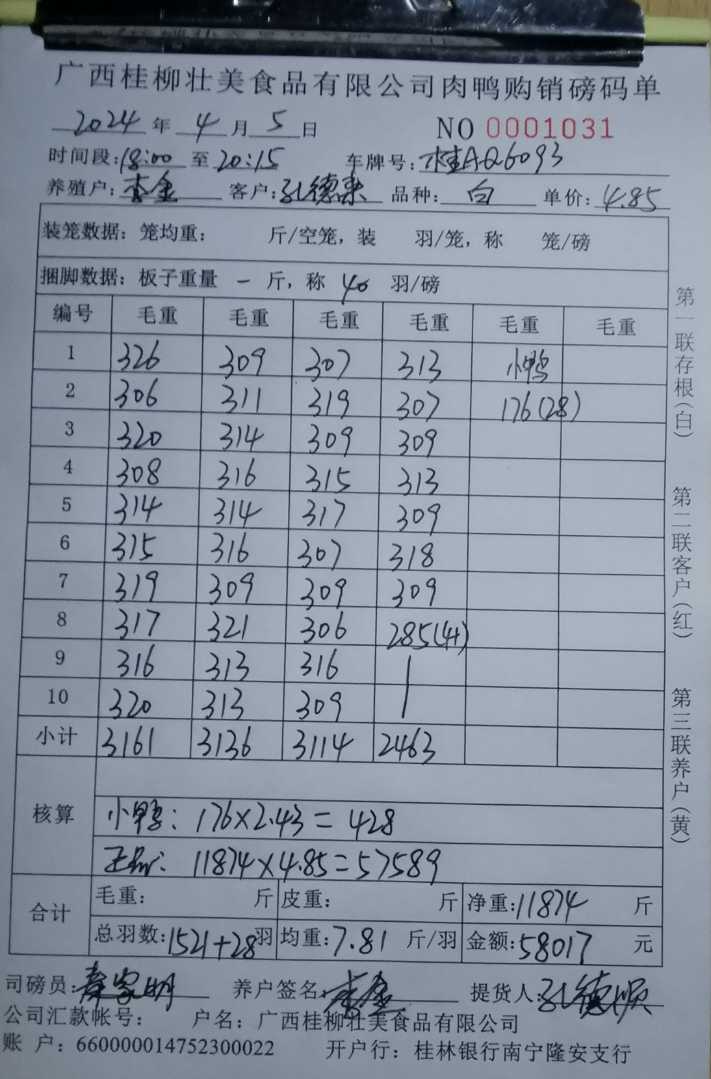 广西桂柳壮美食品有限公司肉鸭购销磅码单
2024 年 4 月 5 日 NO 0001031
时间段: 18:00 至 20:15 车牌号: 桂AQ6093
养殖户: 李金 客户: 孔德来 品种: 白 单价: 4.85
装笼数据: 笼均重: 斤/空笼, 装 羽/笼, 称 笼/磅
捆脚数据: 板子重量 一 斤, 称 40 羽/磅
编号 毛重 毛重 毛重 毛重 毛重 毛重
1 326 309 307 313 小鸭
2 306 311 319 307 176(28)
3 320 314 309 309
4 308 316 315 313
5 314 314 317 309
6 315 316 307 318
7 319 309 309 309
8 317 321 306 285(41)
9 316 313 316 |
10 320 313 309 |
小计 3161 3136 3114 2463
核算
小鸭: 176×2.43=428
正品: 11874×4.85=57589
合计 毛重: 斤 皮重: 斤 净重: 11874 斤
总羽数: 1521+28 羽 均重: 7.81 斤/羽 金额: 58017 元
司磅员: 家明 养户签名: 李金 提货人: 孔德顺
公司汇款帐号: 户名: 广西桂柳壮美食品有限公司
账 户: 660000014752300022 开户行: 桂林银行南宁隆安支行
第一联存根(白) 第二联客户(红) 第三联养户(黄)